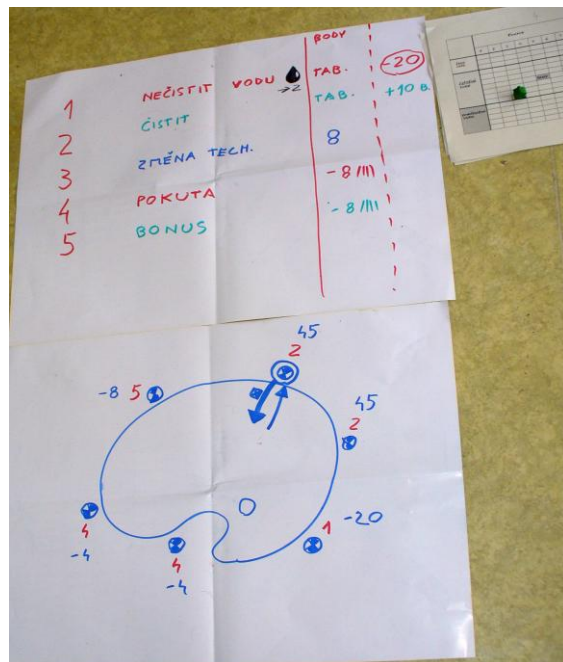 BODY
1 NEČISTIT VODU →2 TAB. -20
2 ČISTIT TAB. +10 B.
3 ZMĚNA TECH. 8
4 POKUTA - 8 /III
5 BONUS - 8 /III
45
2
-8 5
45
2
1 -20
4
-4
4
-4